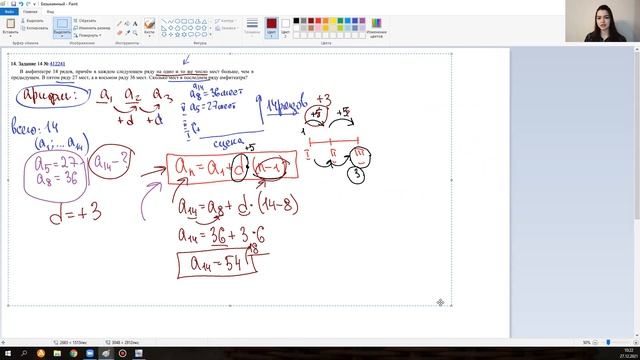 Безымянный - Paint
Файл Главная Вид
Вставить
Выделить
Изменить размер
Повернуть
Кисти
Фигуры
Контур
Заливка
Толщина
Цвет 1
Цвет 2
Изменение цветов
Буфер обмена Изображение Инструменты Фигуры Цвета
14. Задание 14 № 412241
В амфитеатре 14 рядов, причём в каждом следующем ряду на одно и то же число мест больше, чем в
предыдущем. В пятом ряду 27 мест, а в восьмом ряду 36 мест. Сколько мест в последнем ряду амфитеатра?
арифм: a₁ a₂ a₃
+d +d
a₁₄
a₈=36 мест
a₅=27 мест
14 рядов
сцена
+3
+5 +5
1
I II III
3
всего: 14
(a₁; ... a₁₄)
a₅=27
a₈=36
a₁₄-?
d=+3
+5
aₙ=a₁+d·(n-1)
a₁₄=a₈+d·(14-8)
a₁₄=36+3·6
18
a₁₄=54
2683 × 1513пкс
3048 × 2912пкс
50%
10:22
27.12.2021